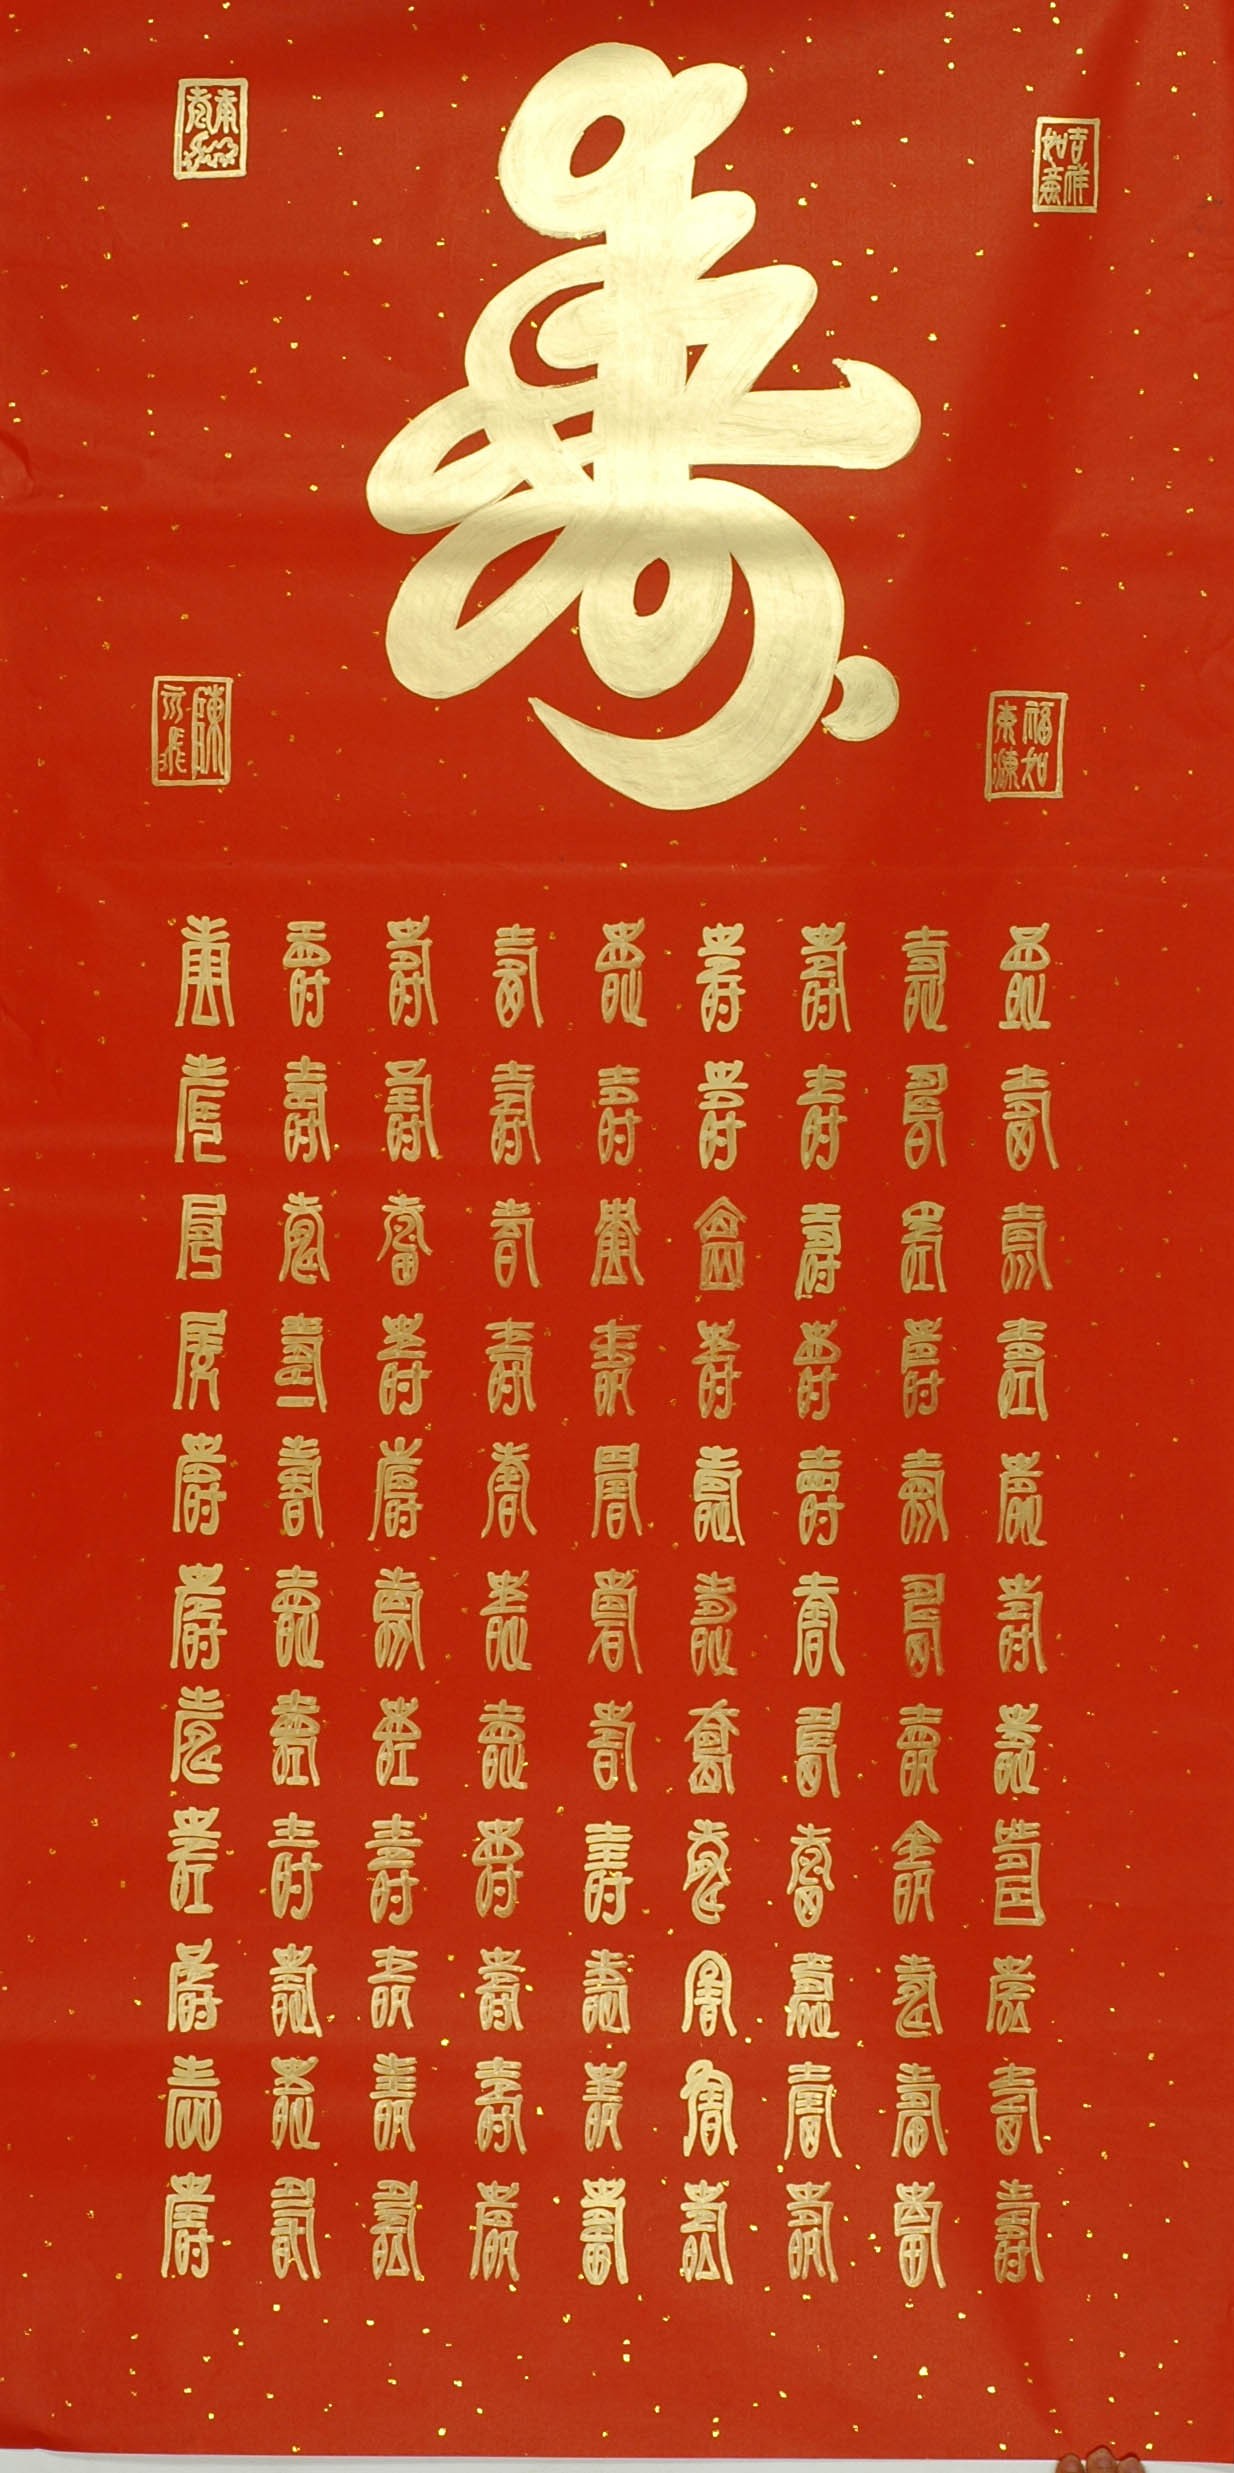 壽
吉祥如意
福如東海
壽壽壽壽壽壽壽壽壽壽壽
壽壽壽壽壽壽壽壽壽壽壽
壽壽壽壽壽壽壽壽壽壽壽
壽壽壽壽壽壽壽壽壽壽壽
壽壽壽壽壽壽壽壽壽壽壽
壽壽壽壽壽壽壽壽壽壽壽
壽壽壽壽壽壽壽壽壽壽壽
壽壽壽壽壽壽壽壽壽壽壽
壽壽壽壽壽壽壽壽壽壽壽
陳